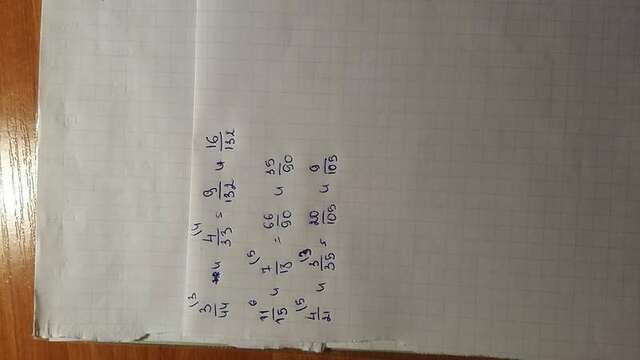 3/44 \3 и 4/33 \4 = 9/132 и 16/132
11/15 \6 и 7/18 \5 = 66/90 и 35/90
4/21 \5 и 3/35 \3 = 20/105 и 9/105